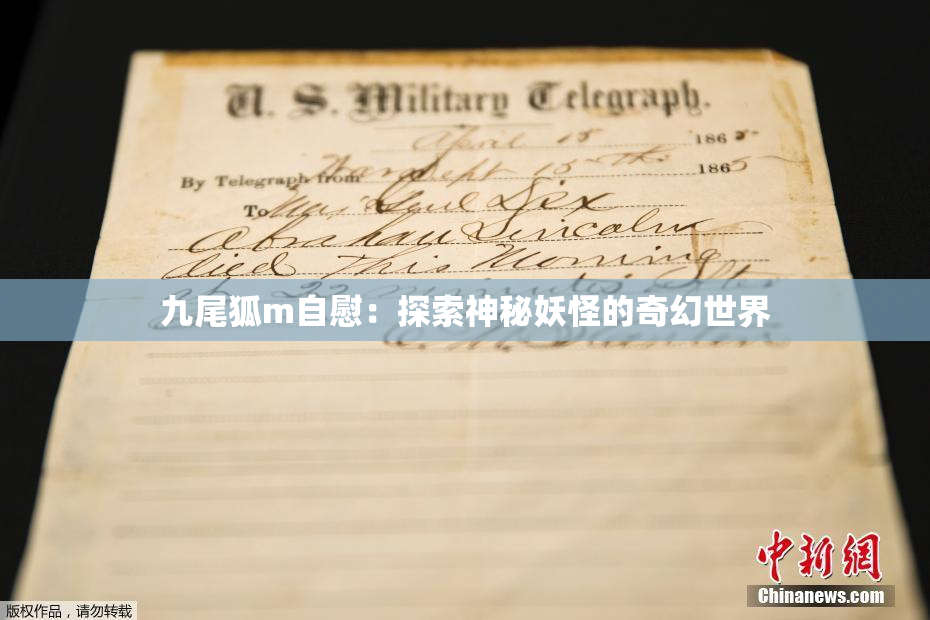 U. S. Military Telegraph.
April 15 1865
By Telegraph from War Dept 15th 1865
To Maj Genl Dix
Abraham Lincoln
died This Morning
at 22 minutes After
九尾狐m自慰：探索神秘妖怪的奇幻世界
E. M. Stanton
中新网
Chinanews.com
版权作品，请勿转载